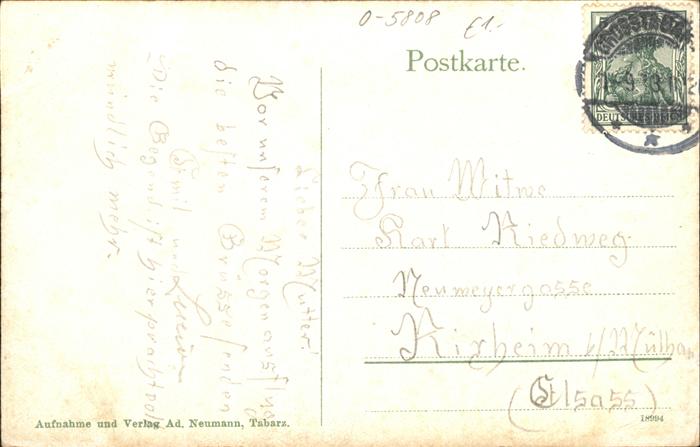 0-5808
£1.-
Postkarte.
DEUTSCHES REICH
Lieber Mutter!
Von unserem Morgenausflug
die besten Grüsse senden
Emil und
Die Gegend ist hier prachtvoll
mündlich mehr.
Frau Witwe
Karl Riedweg
Neumeyergasse
Rixheim b/Mülh
(Elsass)
Aufnahme und Verlag Ad. Neumann, Tabarz.
18994